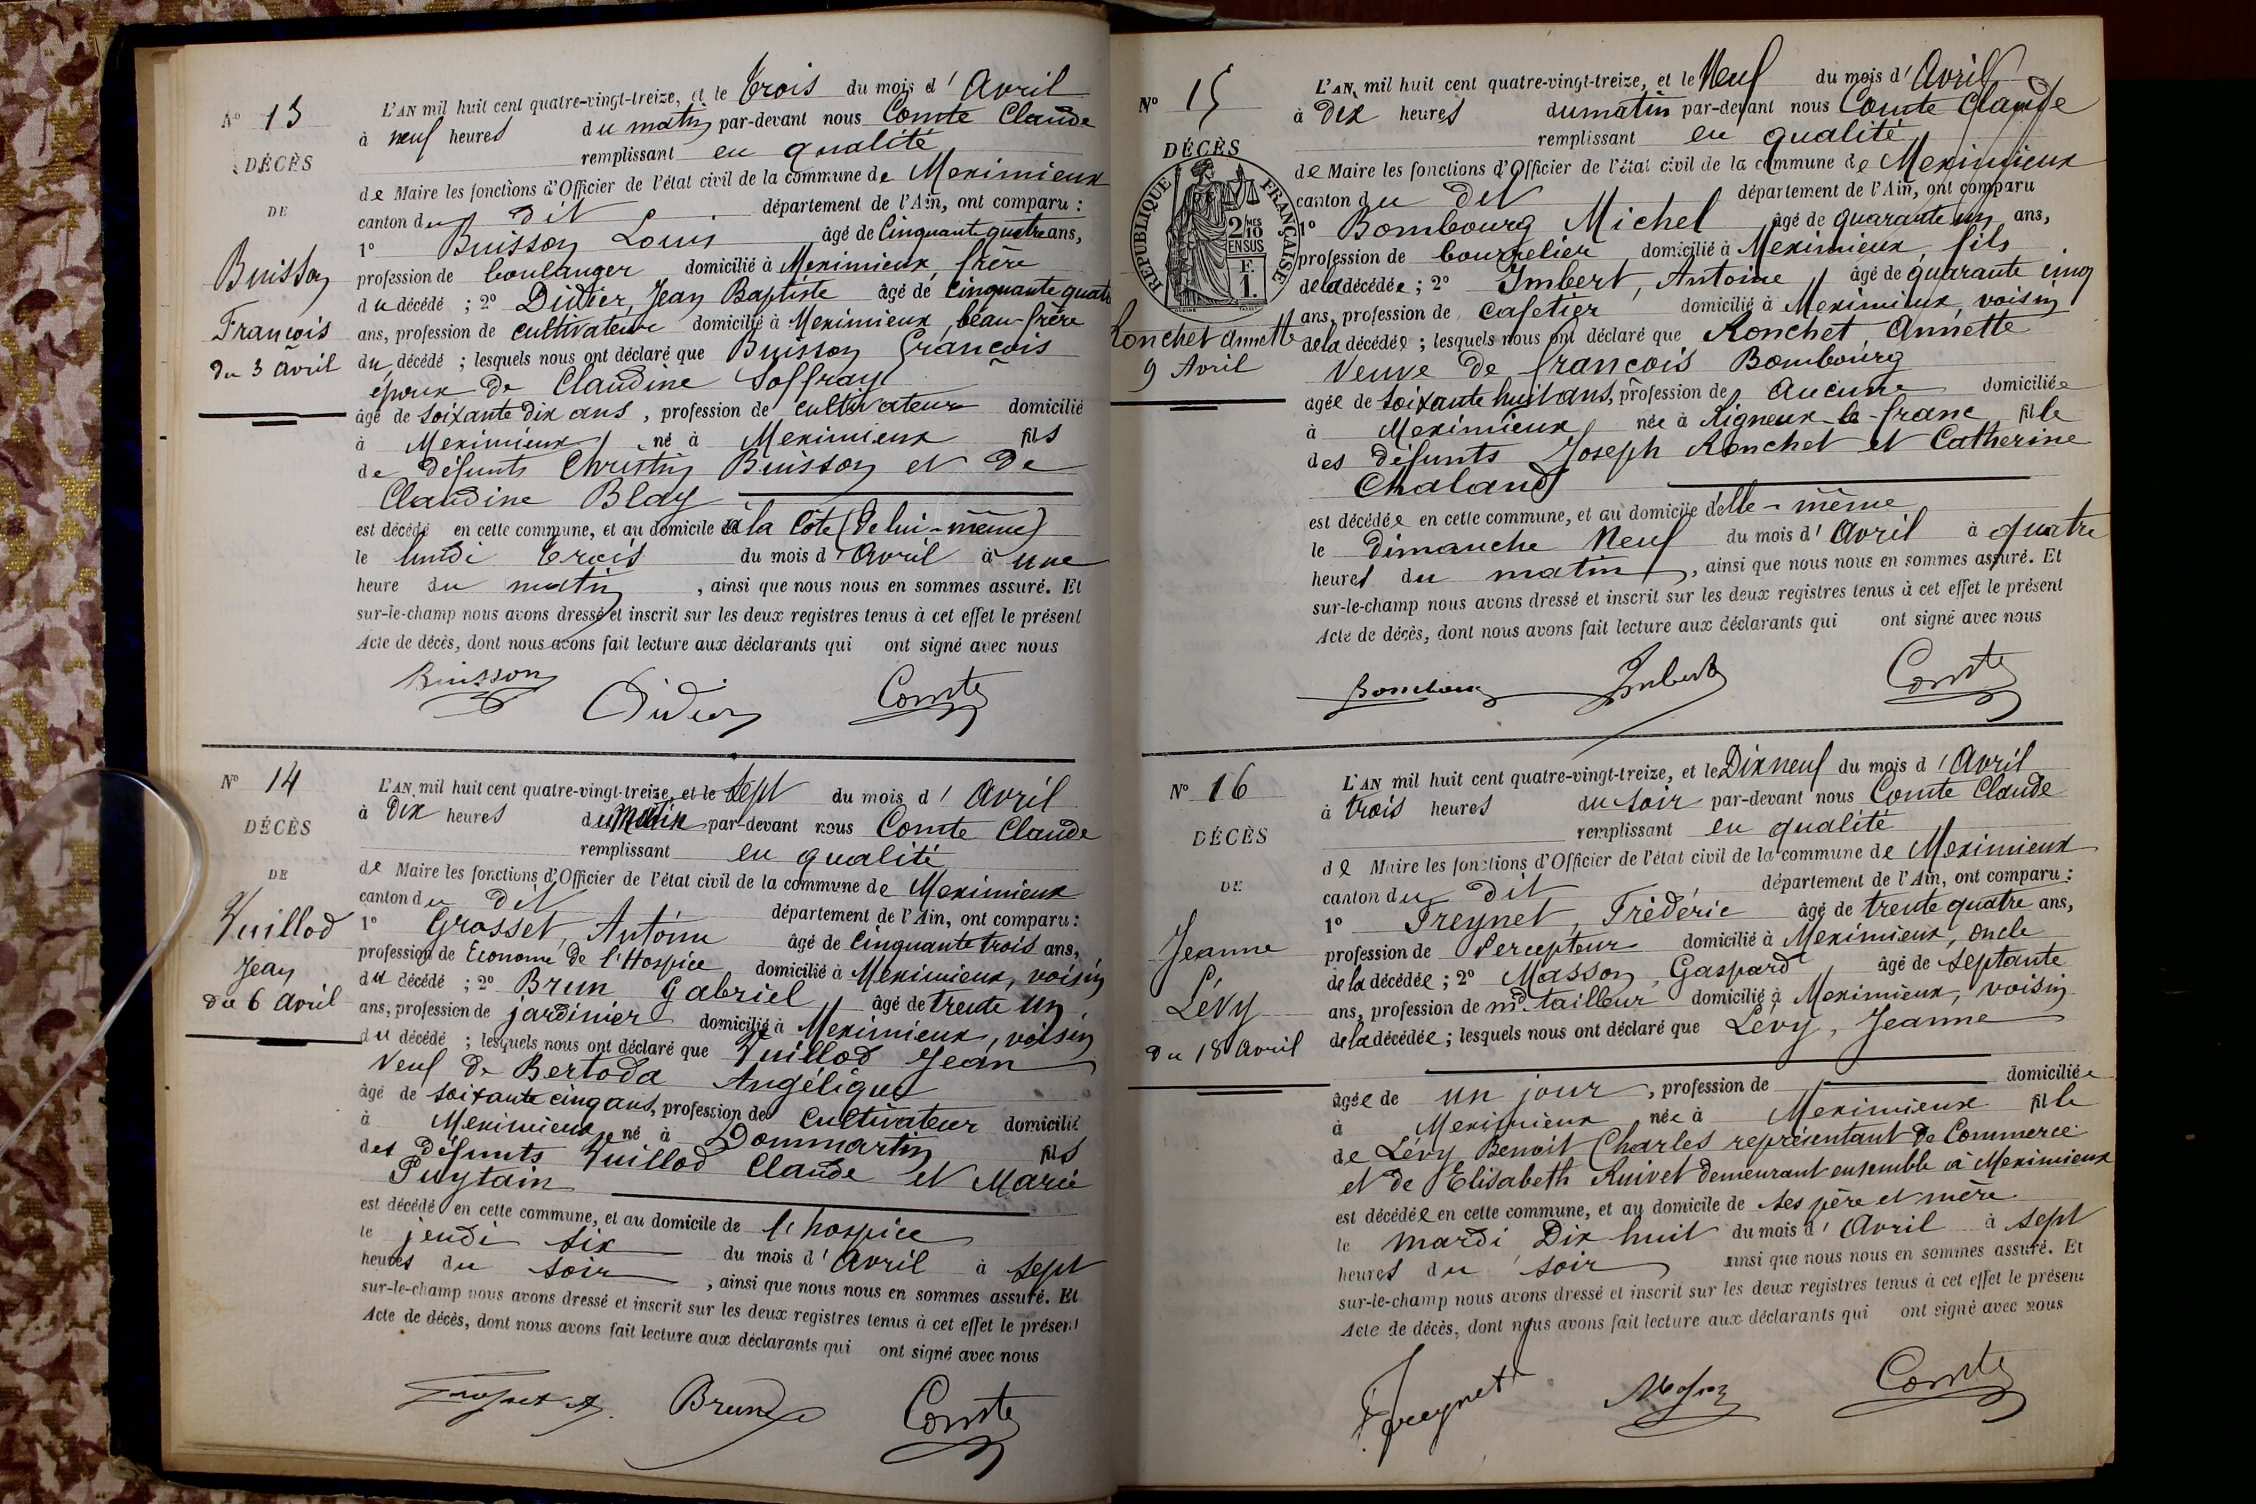 N° 13
DÉCÈS
DE
Buisson
François
du 3 avril
L'AN mil huit cent quatre-vingt-treize, et le trois du mois d'Avril
à neuf heures du matin par-devant nous Comte Claude
remplissant en qualité
de Maire les fonctions d'Officier de l'état civil de la commune de Meximieux
canton du dit département de l'Ain, ont comparu :
1° Buisson Louis âgé de Cinquante quatre ans,
profession de boulanger domicilié à Meximieux, frère
du décédé ; 2° Didier, Jean Baptiste âgé de Cinquante quatre
ans, profession de cultivateur domicilié à Meximieux, beau-frère
du décédé ; lesquels nous ont déclaré que Buisson François
époux de Claudine Soffray
âgé de soixante dix ans, profession de cultivateur domicilié
à Meximieux, né à Meximieux fils
de défunts Christin Buisson et de
Claudine Blay
est décédé en cette commune, et au domicile à la Côte (de lui-même)
le lundi trois du mois d'Avril à une
heure du matin, ainsi que nous nous en sommes assuré. Et
sur-le-champ nous avons dressé et inscrit sur les deux registres tenus à cet effet le présent
Acte de décès, dont nous avons fait lecture aux déclarants qui ont signé avec nous
Buisson Didier Comte
N° 14
DÉCÈS
DE
Vuillod
Jean
du 6 avril
L'AN mil huit cent quatre-vingt-treize, et le sept du mois d'Avril
à dix heures du matin par-devant nous Comte Claude
remplissant en qualité
de Maire les fonctions d'Officier de l'état civil de la commune de Meximieux
canton du dit département de l'Ain, ont comparu :
1° Grosset, Antoine âgé de Cinquante trois ans,
profession de Econome de l'Hospice domicilié à Meximieux, voisin
du décédé ; 2° Brun Gabriel âgé de trente un
ans, profession de jardinier domicilié à Meximieux, voisin
du décédé ; lesquels nous ont déclaré que Vuillod Jean
Veuf de Bertoda Angélique
âgé de soixante cinq ans, profession de cultivateur domicilié
à Meximieux, né à Dommartin fils
des défunts Vuillod Claude et Marie
Puytain
est décédé en cette commune, et au domicile de l'hospice
le jeudi six du mois d'Avril à sept
heures du soir, ainsi que nous nous en sommes assuré. Et
sur-le-champ nous avons dressé et inscrit sur les deux registres tenus à cet effet le présent
Acte de décès, dont nous avons fait lecture aux déclarants qui ont signé avec nous
Grosset A. Brun Comte
N° 15
DÉCÈS
RÉPUBLIQUE FRANÇAISE
2/10 MES
EN SUS
F.
1.
Ronchet Annette
9 Avril
L'AN mil huit cent quatre-vingt-treize, et le Neuf du mois d'Avril
à Dix heures du matin par-devant nous Comte Claude
remplissant en qualité
de Maire les fonctions d'Officier de l'état civil de la commune de Meximieux
canton du dit département de l'Ain, ont comparu
1° Bombourg Michel âgé de quarante un ans,
profession de bourrelier, domicilié à Meximieux, fils
de la décédée ; 2° Imbert, Antoine âgé de quarante cinq
ans, profession de cafetier domicilié à Meximieux, voisin
de la décédée ; lesquels nous ont déclaré que Ronchet Annette
Veuve de François Bombourg
agée de soixante huit ans, profession de aucune domiciliée
à Meximieux, née à Rigneux-le-franc fille
des défunts Joseph Ronchet et Catherine
Chaland
est décédée en cette commune, et au domicile d'elle-même
le Dimanche Neuf du mois d'Avril à quatre
heures du matin, ainsi que nous nous en sommes assuré. Et
sur-le-champ nous avons dressé et inscrit sur les deux registres tenus à cet effet le présent
Acte de décès, dont nous avons fait lecture aux déclarants qui ont signé avec nous
Bombourg Imbert Comte
N° 16
DÉCÈS
DE
Jeanne
Lévy
du 18 avril
L'AN mil huit cent quatre-vingt-treize, et le Dix neuf du mois d'Avril
à trois heures du soir par-devant nous Comte Claude
remplissant en qualité
de Maire les fonctions d'Officier de l'état civil de la commune de Meximieux
canton du dit département de l'Ain, ont comparu :
1° Freynet, Frédéric âgé de trente quatre ans,
profession de Percepteur domicilié à Meximieux, oncle
de la décédée ; 2° Masson, Gaspard âgé de septante
ans, profession de md. tailleur domicilié à Meximieux, voisin
de la décédée ; lesquels nous ont déclaré que Lévy, Jeanne
âgée de un jour, profession de domiciliée
à Meximieux née à Meximieux fille
de Lévy Benoit Charles représentant de Commerce
et de Elisabeth Ruivet demeurant ensemble à Meximieux
est décédée en cette commune, et au domicile de ses père et mère
le mardi Dix huit du mois d'Avril à sept
heures du soir ainsi que nous nous en sommes assuré. Et
sur-le-champ nous avons dressé et inscrit sur les deux registres tenus à cet effet le présent
Acte de décès, dont nous avons fait lecture aux déclarants qui ont signé avec nous
Freynet Masson Comte